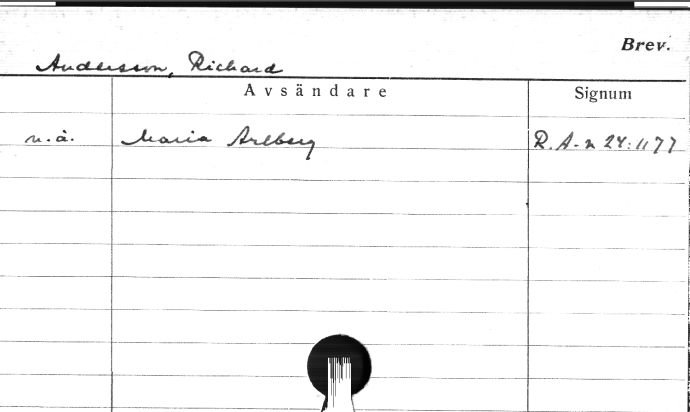 Brev.
Andersson, Richard
Avsändare Signum
u.å. Maria Arlberg R.A-n 24:1177